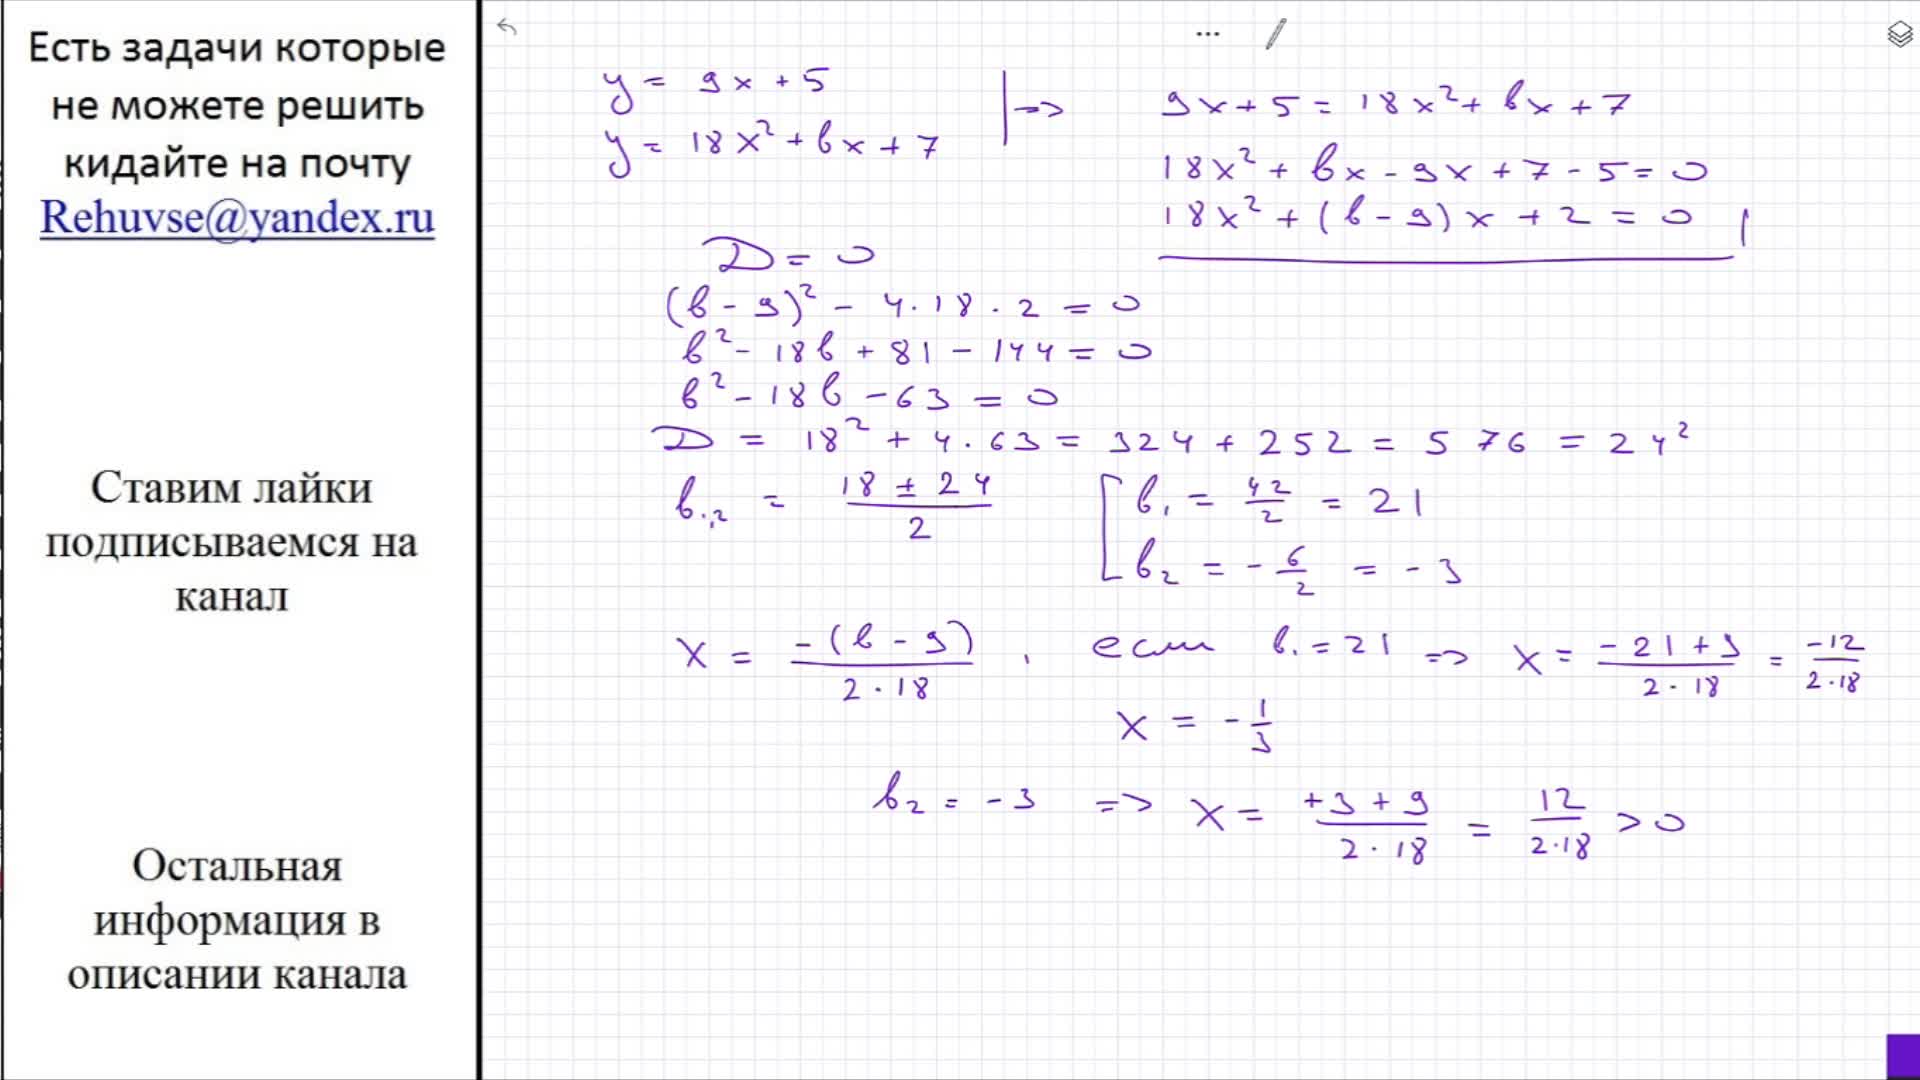 Есть задачи которые
не можете решить
кидайте на почту
Rehuvse@yandex.ru
Ставим лайки
подписываемся на
канал
Остальная
информация в
описании канала
y = 9x + 5
y = 18x² + bx + 7
=> 9x + 5 = 18x² + bx + 7
18x² + bx - 9x + 7 - 5 = 0
18x² + (b - 9)x + 2 = 0
D = 0
(b - 9)² - 4·18·2 = 0
b² - 18b + 81 - 144 = 0
b² - 18b - 63 = 0
D = 18² + 4·63 = 324 + 252 = 576 = 24²
b₁,₂ = (18 ± 24)/2
b₁ = 42/2 = 21
b₂ = -6/2 = -3
x = -(b - 9)/(2·18), если b₁ = 21 => x = (-21 + 9)/(2·18) = -12/(2·18)
x = -1/3
b₂ = -3 => x = (+3 + 9)/(2·18) = 12/(2·18) > 0